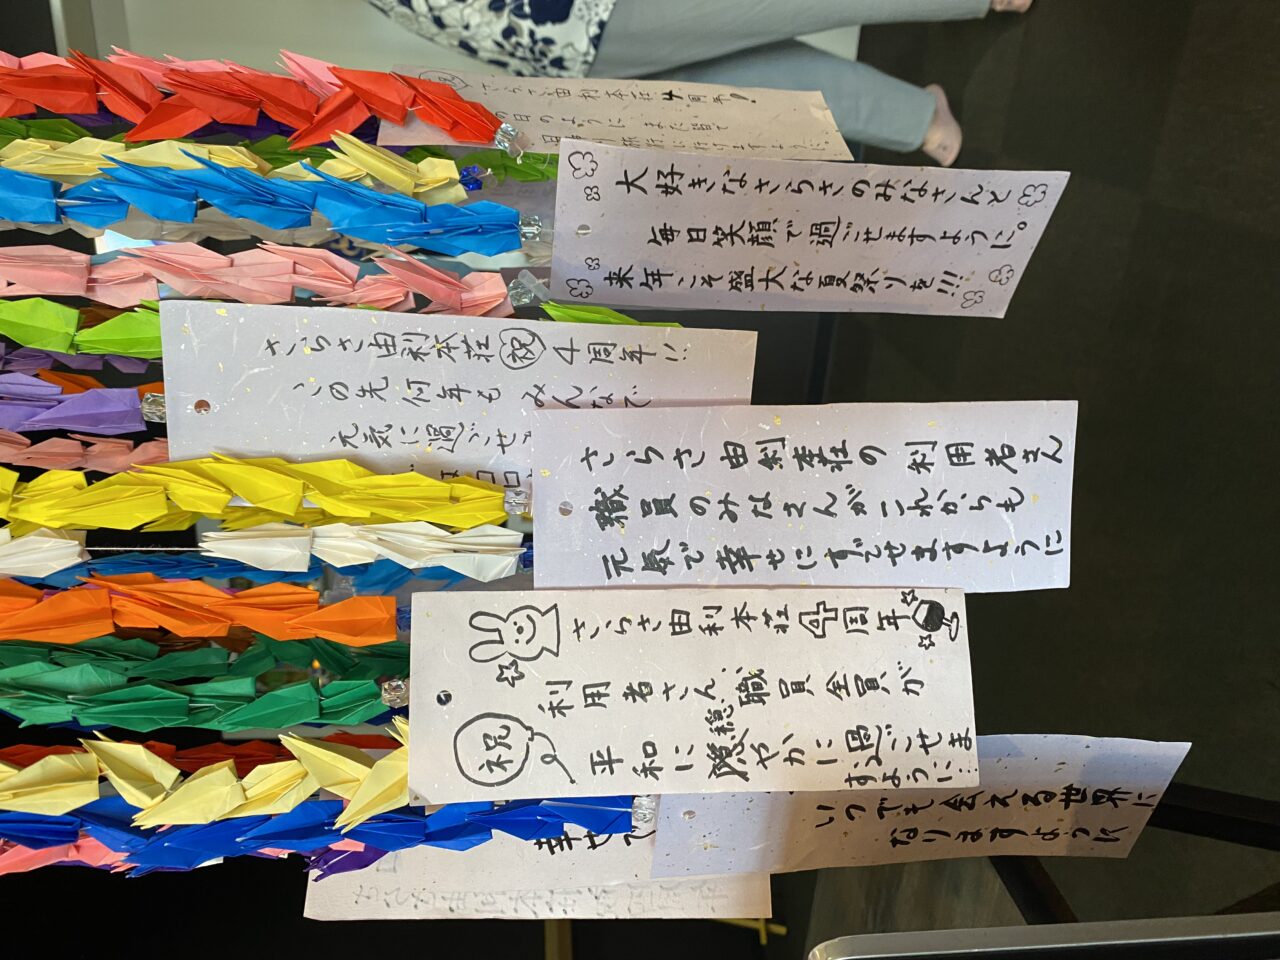 祝 さらさ由利本荘4周年!
の日のように、また皆で
大好きなさらさのみなさんと
毎日笑顔で過ごせますように。
来年こそ盛大な夏祭りを!!!
さらさ由利本荘 祝 4周年!!
この先何年も みんなで
元気に過ごせ
さらさ由利本荘の利用者さん
職員のみなさんがこれからも
元気で幸せにすごせますように
さらさ由利本荘4周年
利用者さん、職員全員が
平和に穏やかに過ごせま
すように…
祝
いつでも会える世界に
なりますように
幸せで